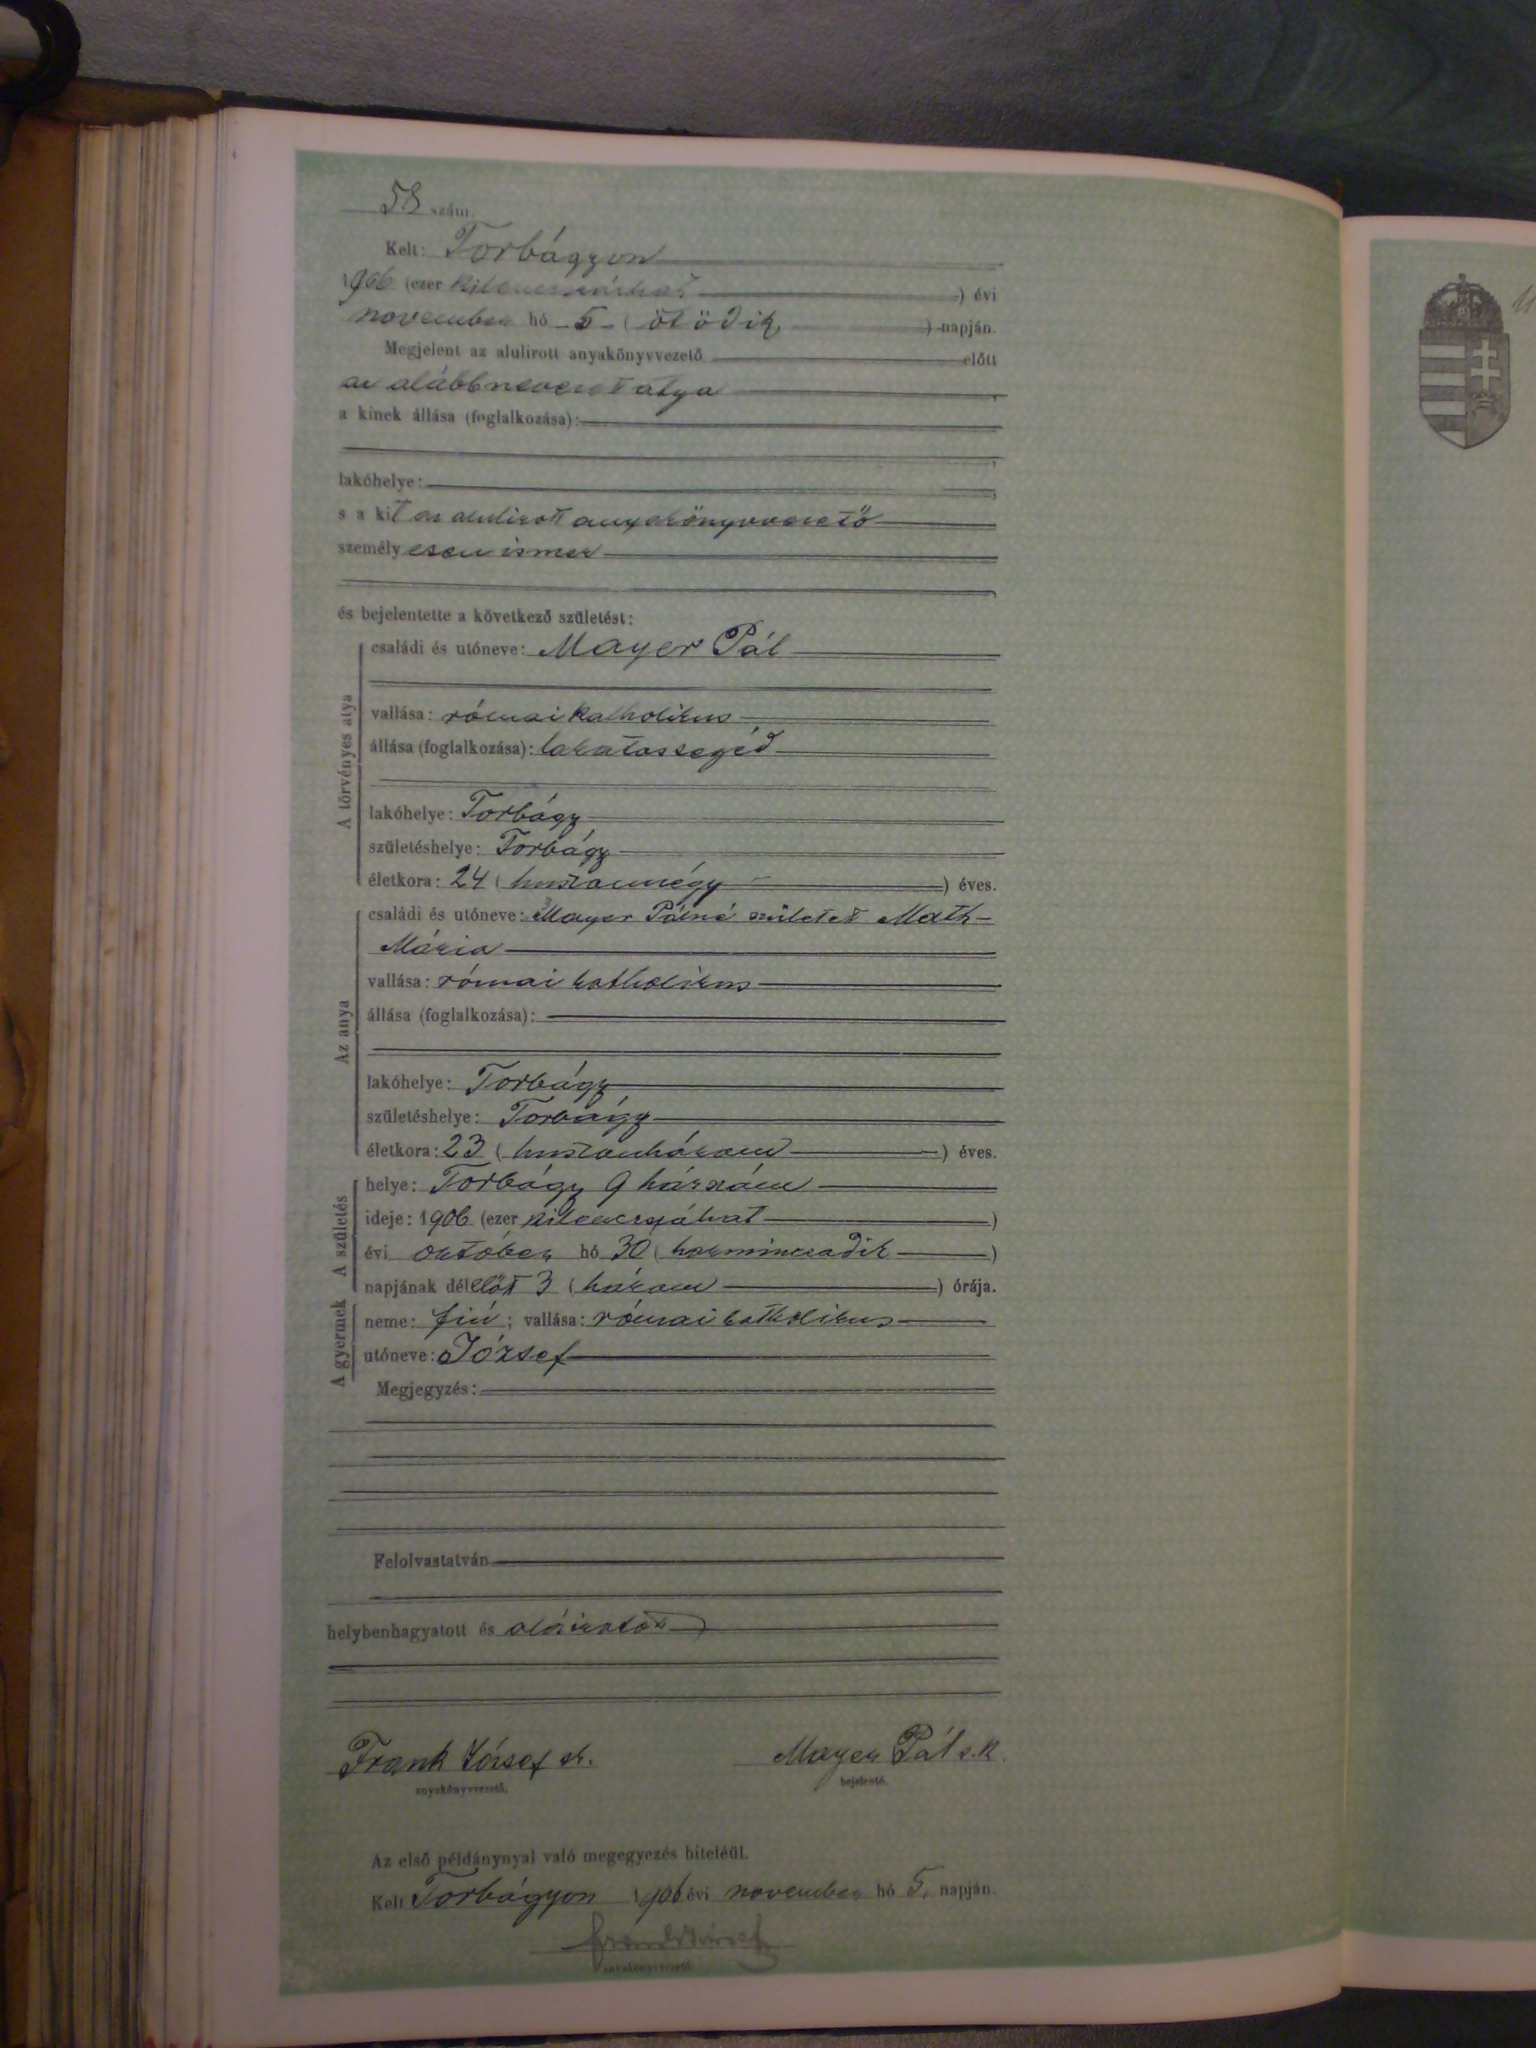 58 szám.
Kelt: Torbágyon
1906 (ezer kilencszázhat) évi
november hó 5 (ötödik) napján.
Megjelent az alulirott anyakönyvvezető előtt
az alább nevezett atya
a kinek állása (foglalkozása):
lakóhelye:
s a kit az alulirott anyakönyvvezető
személyesen ismer
és bejelentette a következő születést:
A törvényes atya
családi és utóneve: Mayer Pál
vallása: római katholikus
állása (foglalkozása): lakatossegéd
lakóhelye: Torbágy
születéshelye: Torbágy
életkora: 24 (huszonnégy) éves.
Az anya
családi és utóneve: Mayer Pálné született Math
Mária
vallása: római katholikus
állása (foglalkozása):
lakóhelye: Torbágy
születéshelye: Torbágy
életkora: 23 (huszonhárom) éves.
A születés
helye: Torbágy 9 házszám
ideje: 1906 (ezer kilencszázhat)
évi október hó 30 (harmincadik)
napjának délelőt 3 (három) órája.
A gyermek
neme: fiú; vallása: római katholikus
utóneve: József
Megjegyzés:
Felolvastatván
helybenhagyatott és aláiratot
Frank József sk. Mayer Pál s.k.
anyakönyvvezető. bejelentő.
Az első példánynyal való megegyezés hiteléül.
Kelt Torbágyon 1906 évi november hó 5. napján.
anyakönyvvezető.